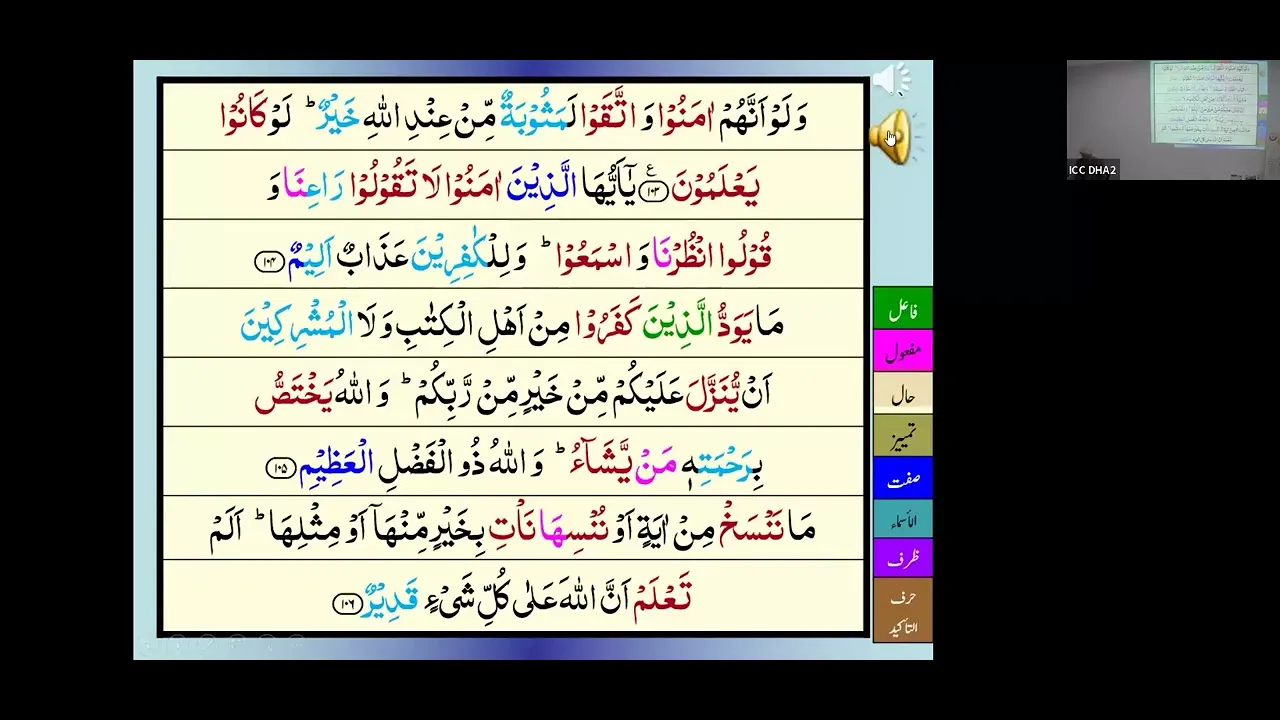 وَلَوْ اَنَّهُمْ اٰمَنُوْا وَ اتَّقَوْا لَمَثُوْبَةٌ مِّنْ عِنْدِ اللهِ خَيْرٌ ؕ لَوْ كَانُوْا
يَعْلَمُوْنَ ﴿۱۰۳﴾ ع يٰۤاَيُّهَا الَّذِيْنَ اٰمَنُوْا لَا تَقُوْلُوْا رَاعِنَا وَ
قُوْلُوا انْظُرْنَا وَ اسْمَعُوْا ؕ وَ لِلْكٰفِرِيْنَ عَذَابٌ اَلِيْمٌ ﴿۱۰۴﴾
مَا يَوَدُّ الَّذِيْنَ كَفَرُوْا مِنْ اَهْلِ الْكِتٰبِ وَ لَا الْمُشْرِكِيْنَ
اَنْ يُّنَزَّلَ عَلَيْكُمْ مِّنْ خَيْرٍ مِّنْ رَّبِّكُمْ ؕ وَ اللهُ يَخْتَصُّ
بِرَحْمَتِهٖ مَنْ يَّشَآءُ ؕ وَ اللهُ ذُو الْفَضْلِ الْعَظِيْمِ ﴿۱۰۵﴾
مَا نَنْسَخْ مِنْ اٰيَةٍ اَوْ نُنْسِهَا نَاْتِ بِخَيْرٍ مِّنْهَاۤ اَوْ مِثْلِهَا ؕ اَلَمْ
تَعْلَمْ اَنَّ اللهَ عَلٰى كُلِّ شَیْءٍ قَدِيْرٌ ﴿۱۰۶﴾
فاعل
مفعول
حال
تمییز
صفت
الأسماء
ظرف
حرف
التاکید
ICC DHA2